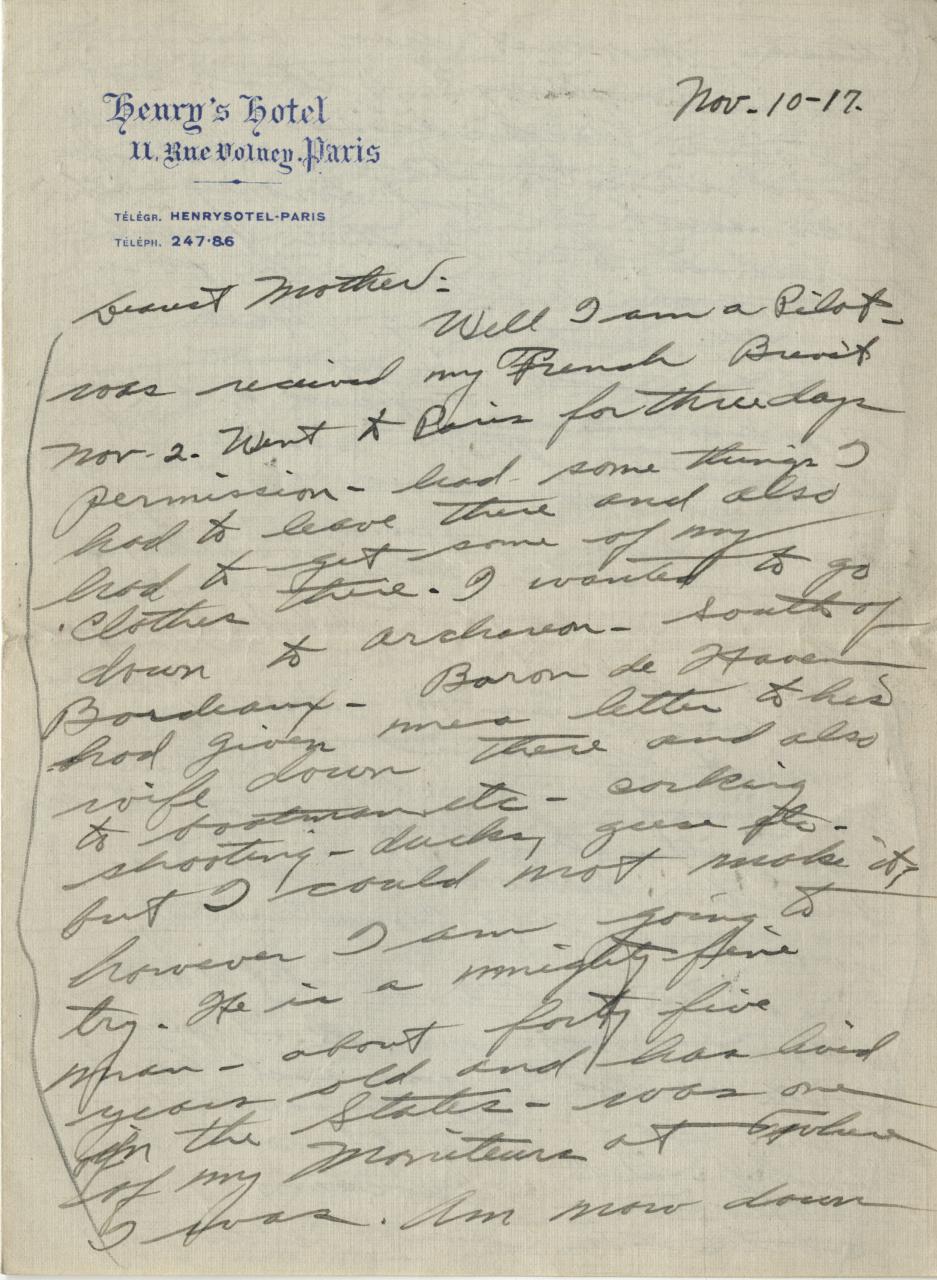 Henry's Hotel
11, Rue Volney. Paris
TÉLÉGR. HENRYSOTEL-PARIS
TÉLÉPH. 247·86
Nov-10-17.
Dearest Mother:
Well I am a Pilot-
was recieved my French Brevit
Nov-2. Went to Paris for three days
permission- had some things I
had to leave there and also
had to get some of my
clothes there. I wanted to go
down to archaeon- South of
Bordeaux- Baron de Haven
had given me a letter to his
wife down there and also
to boatman etc- corking
shooting- ducks, geese etc-
but I could not make it,
however I am going to
try. He is a mighty fine
man- about forty five
years old and has lived
in the States- was one
of my Moniteurs at where
I was. Am now down